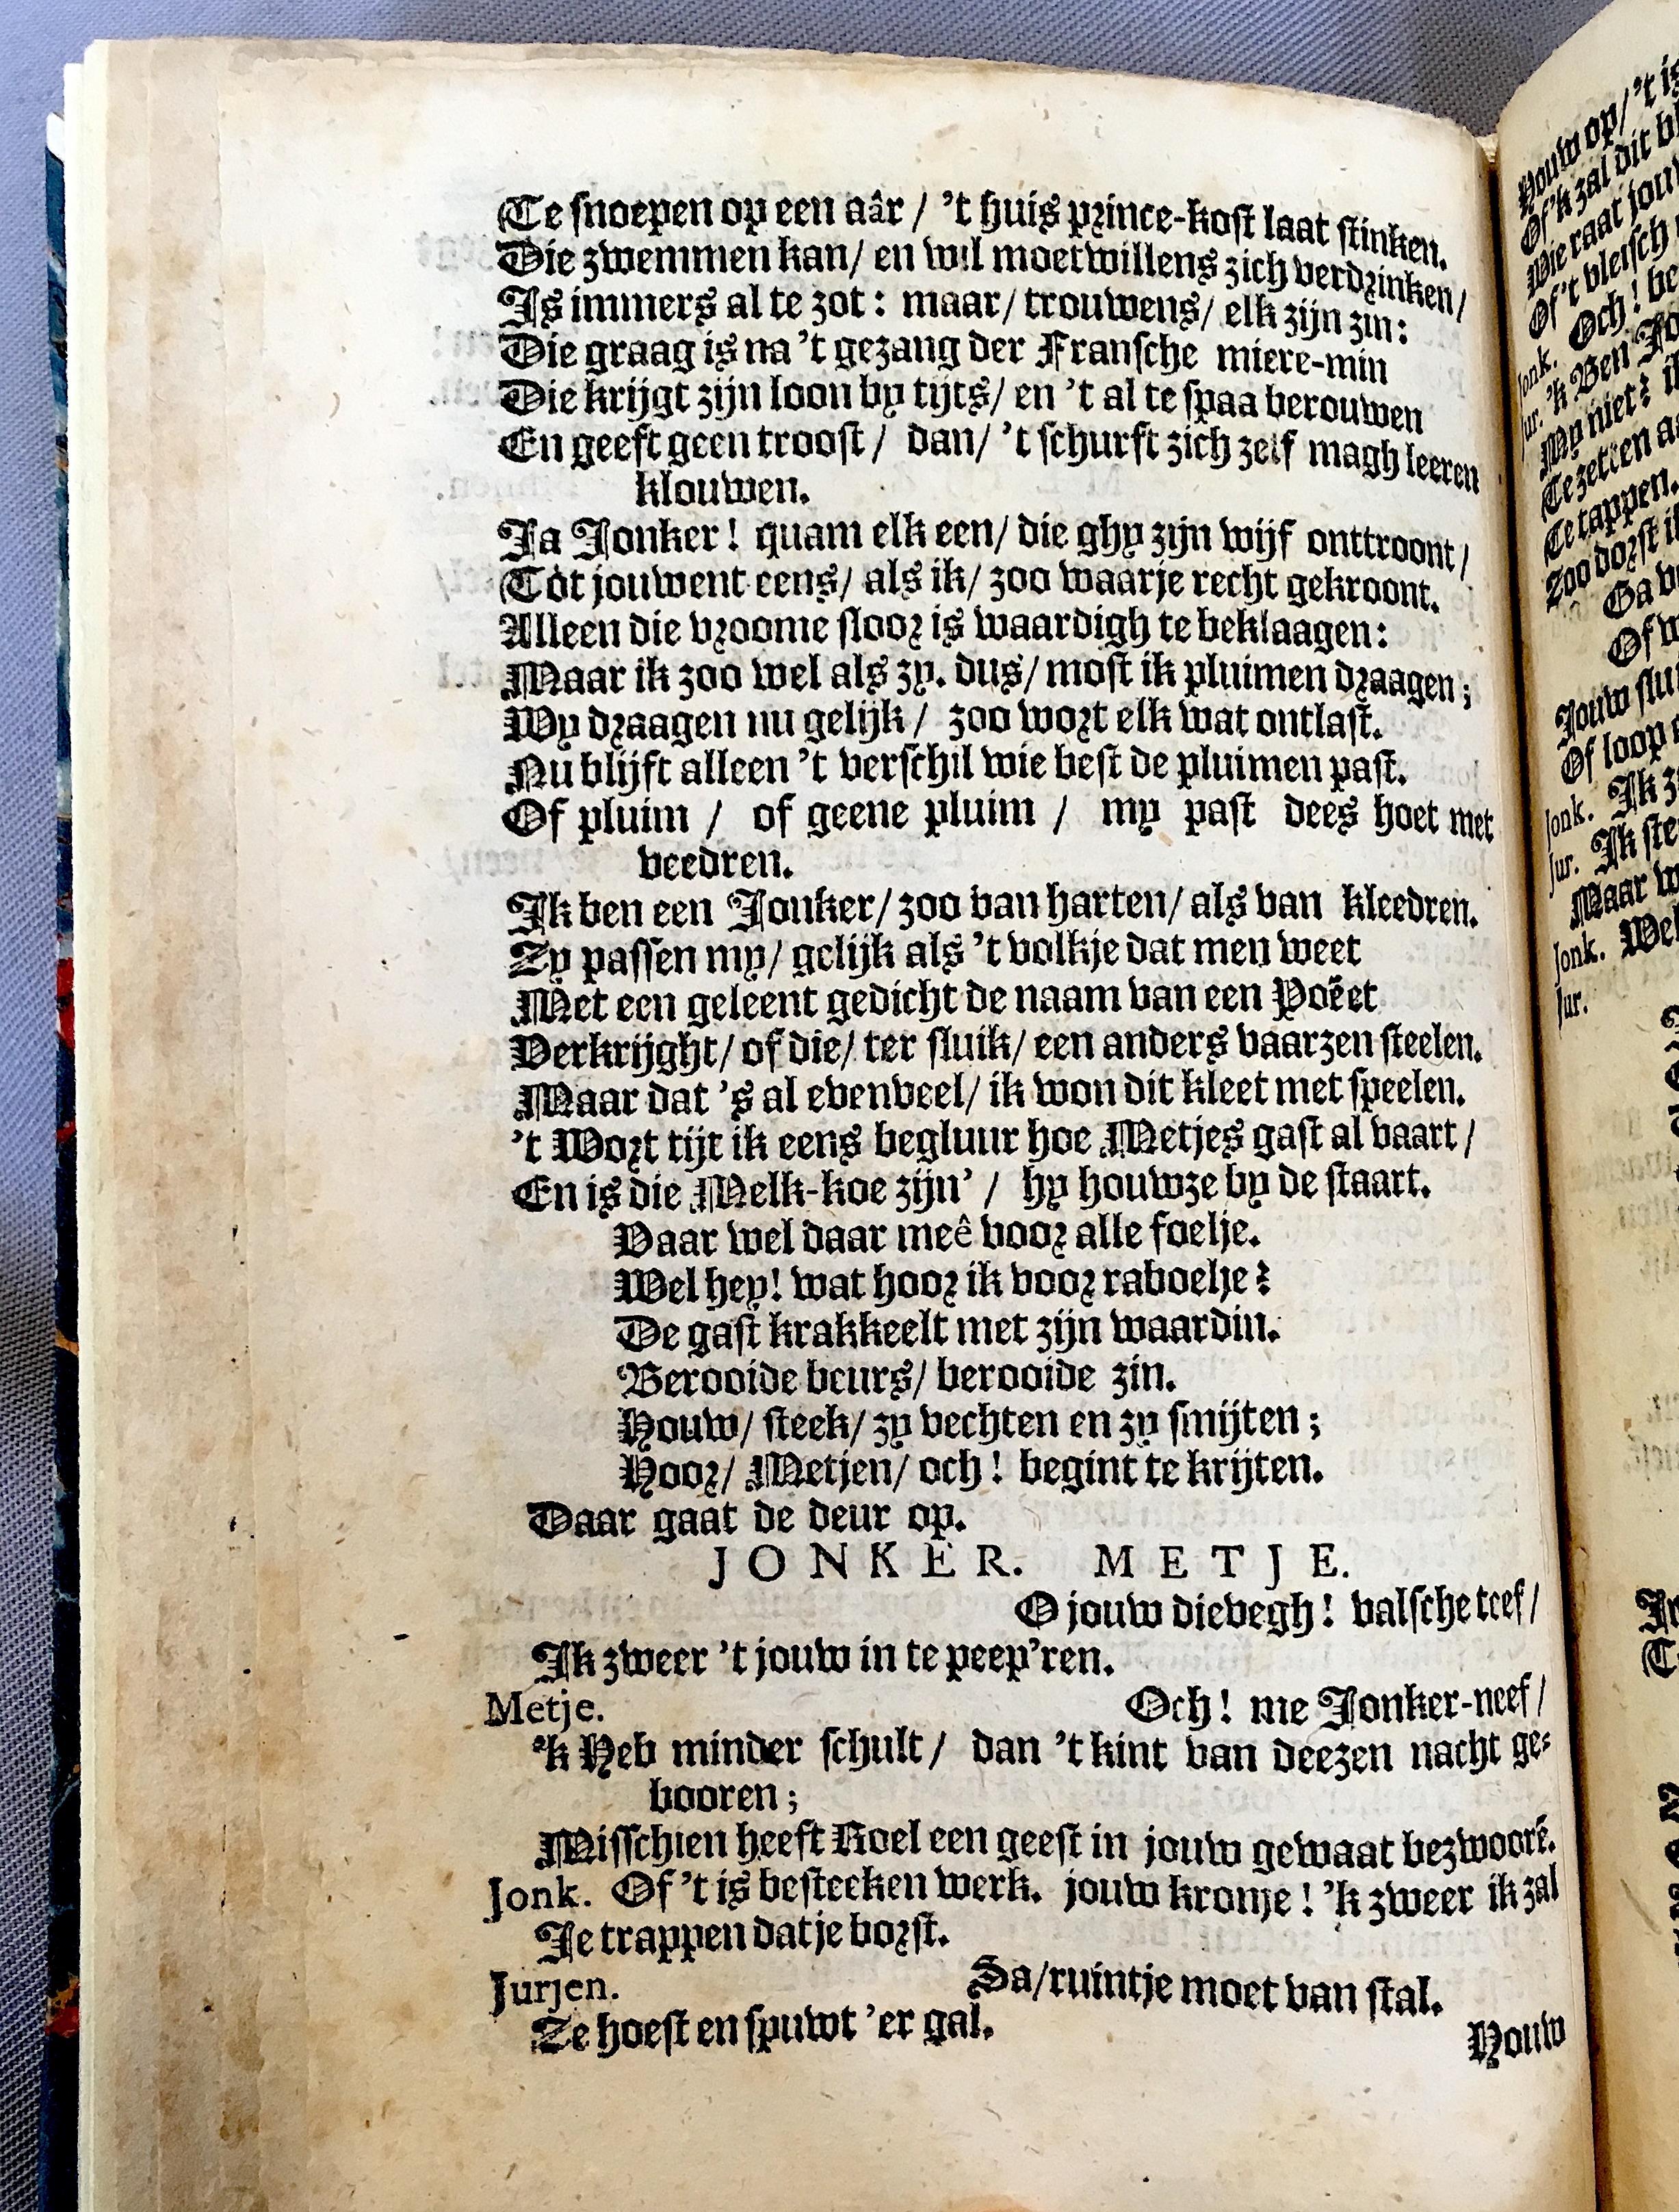 Te snoepen op een aâr / 't huis prince-kost laat stinken.
Die zwemmen kan / en wil moetwillens zich verdrinken /
Is immers al te zot : maar / trouwens / elk zijn zin :
Die graag is na 't gezang der Fransche miere-min
Die krijgt zijn loon by tijts / en 't al te spaa berouwen
En geeft geen troost / dan / 't schurft zich zelf magh leeren
klouwen.
Ja Jonker ! quam elk een / die ghy zijn wijf onttroont /
Tot jouwent eens / als ik / zoo waarje recht gekroont.
Alleen die vroome sloor is waardigh te beklaagen :
Maar ik zoo wel als zy. dus / most ik pluimen draagen ;
Wy draagen nu gelijk / zoo wort elk wat ontlast.
Nu blijft alleen 't verschil wie best de pluimen past.
Of pluim / of geene pluim / my past dees hoet met
veedren.
Ik ben een Jonker / zoo van harten / als van kleedren.
Zy passen my / gelijk als 't volkje dat men weet
Met een geleent gedicht de naam van een Poëet
Verkrijght / of die / ter sluik / een anders vaarzen steelen.
Maar dat 's al evenveel / ik won dit kleet met speelen.
't Wort tijt ik eens begluur hoe Metjes gast al vaart /
En is die Melk-koe zijn' / hy houwze by de staart.
Vaar wel daar meê voor alle foelje.
Wel hey! wat hoor ik voor raboelje ?
De gast krakkeelt met zijn waardin.
Berooide beurs / berooide zin.
Houw / steek / zy vechten en zy smijten ;
Hoor / Metjen / och ! begint te krijten.
Daar gaat de deur op.
JONKER. METJE.
O jouw dievegh ! valsche teef /
Ik zweer 't jouw in te peep'ren.
Metje. Och ! me Jonker-neef /
'k Heb minder schult / dan 't kint van deezen nacht ge-
booren ;
Misschien heeft Roel een geest in jouw gewaat bezwoorē.
Jonk. Of 't is besteeken werk. jouw kronje ! 'k zweer ik zal
Je trappen datje borst.
Jurjen. Sa / ruintje moet van stal.
Ze hoest en spuwt 'er gal.
Houw
Houw op / 't is
Of 'k zal dit
Wie raat
Of 't vleisch
Och ! be
Jonk. 'k Ben
Jur. My niet ?
Te zetten
Te tappen.
Zoo dorst
Ga
Of
Jouw
Of loop
Jonk. Ik
Jur. Ik
Maar
Jonk. Wel
Jur.